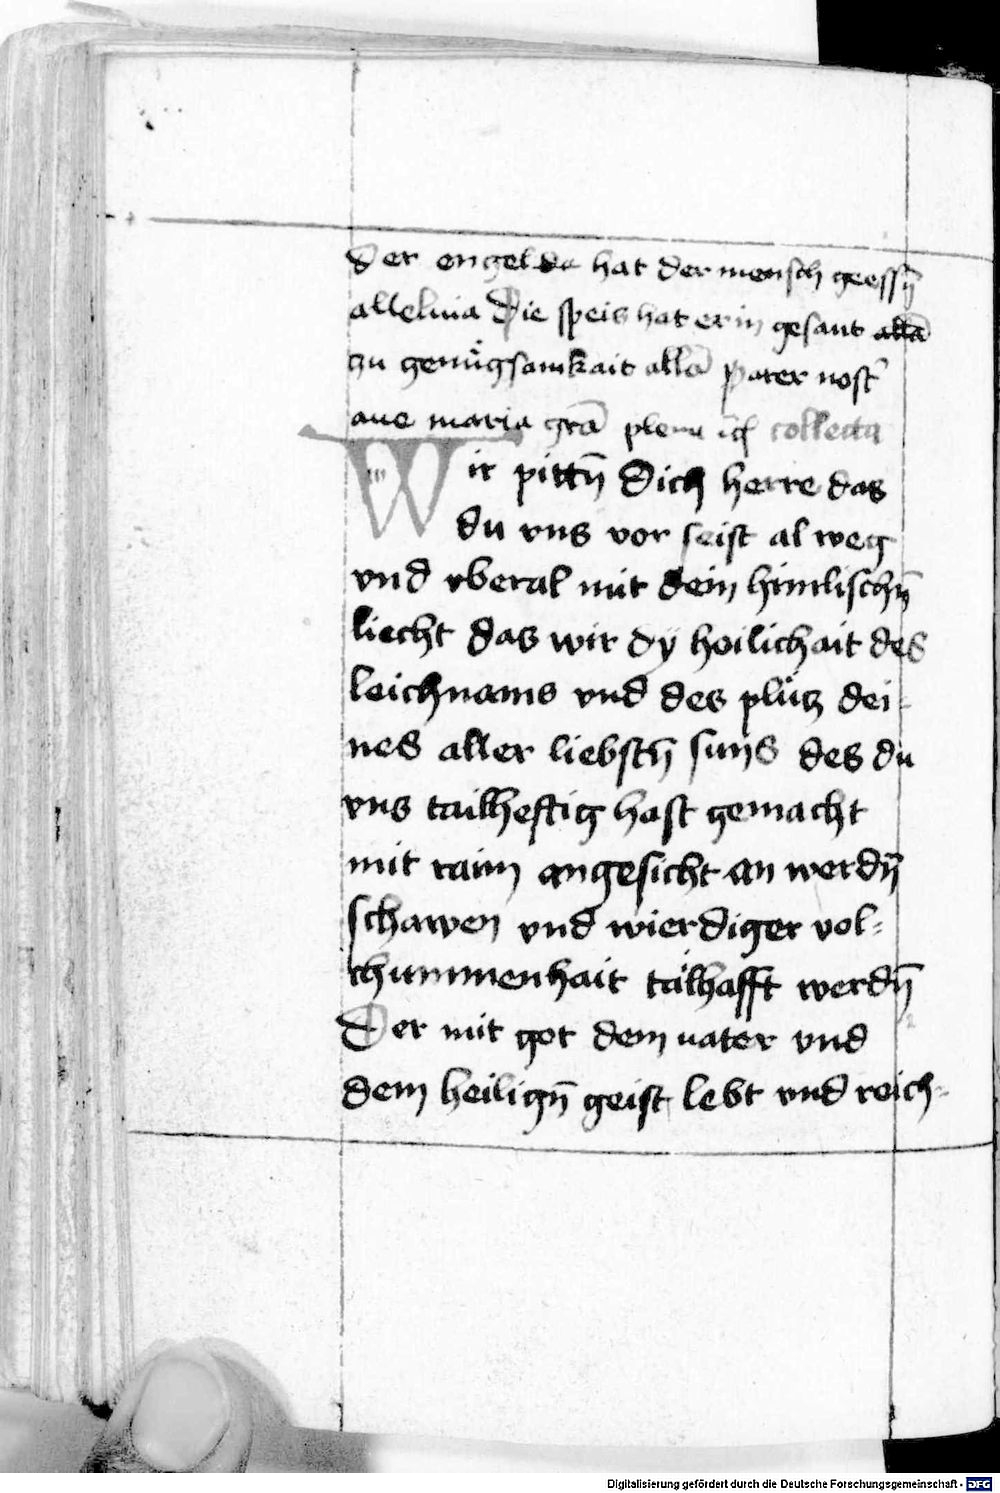 Der engel da hat der mensch geessn̄
alleluia Die speis hat er in gesant all̄a
zu genu̇gsamkait all̄a Pater nost̄
aue maria gr̄a plena ic̄h collecta
Wir pittn̄ Dich herre das
du vns vor seist al weg
vnd vberal mit dein himlischn̄
liecht das wir dÿ heilichait des
leichnams vnd des plu̇tz dei-
nes aller liebstn̄ suns des du
vns tailheftig hast gemacht
mit raim angesicht an werdn̄
schawen vnd wierdiger vol-
chummenhait tailhafft werdn̄
Der mit got dem vater vnd
dem heilign̄ geist lebt vnd reich-
Digitalisierung gefördert durch die Deutsche Forschungsgemeinschaft - DFG